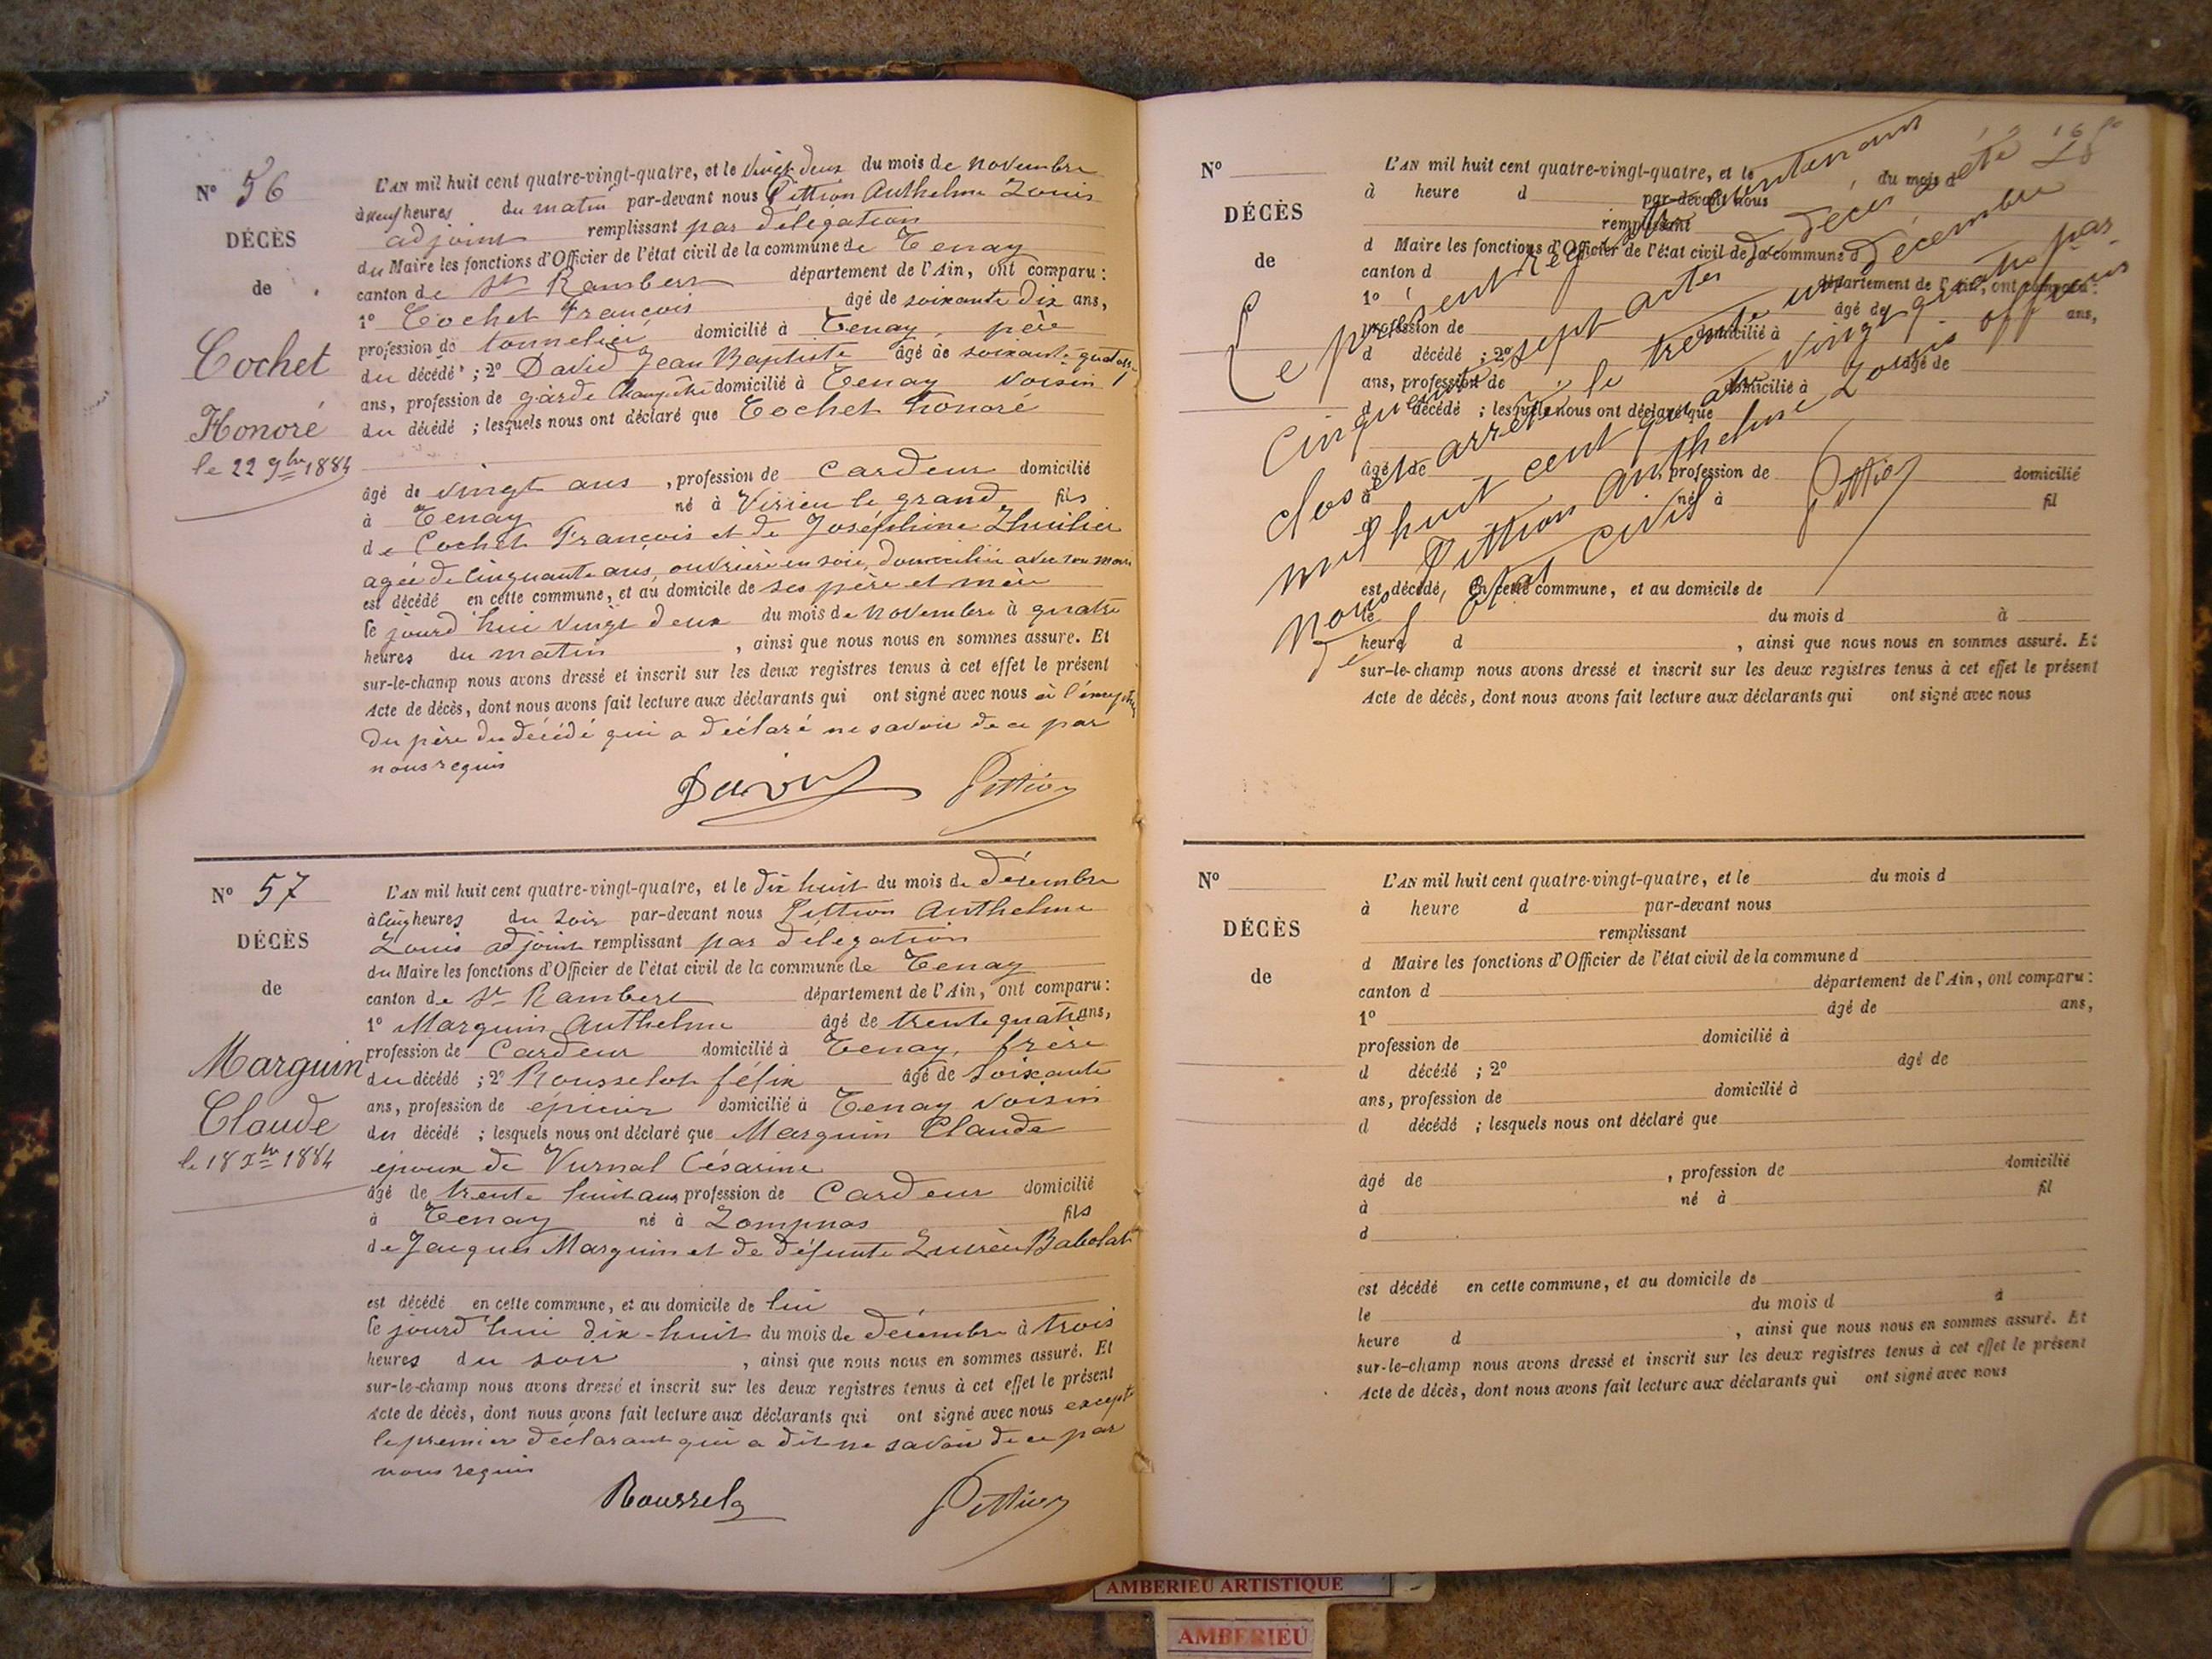 N° 56
DÉCÈS
de
Cochet
Honoré
le 22 9bre 1884
L'AN mil huit cent quatre-vingt-quatre, et le vingt deux du mois de novembre
à neuf heures du matin par-devant nous Pittion Anthelme Louis
adjoint remplissant par délégation
du Maire les fonctions d'Officier de l'état civil de la commune de Tenay
canton de St Rambert département de l'Ain, ont comparu :
1° Cochet François âgé de soixante dix ans,
profession de tonnelier domicilié à Tenay, père
du décédé ; 2° David Jean Baptiste âgé de soixante quatorze
ans, profession de garde champêtre domicilié à Tenay voisin
du décédé ; lesquels nous ont déclaré que Cochet honoré
âgé de vingt ans , profession de Cardeur domicilié
à Tenay né à Virieu le grand fils
de Cochet François et de Joséphine Lhuilier
agée de cinquante ans, ouvrière en soie, domiciliée avec son mari
est décédé en cette commune, et au domicile de ses père et mère
le jourd'hui vingt deux du mois de novembre à quatre
heures du matin , ainsi que nous nous en sommes assuré. Et
sur-le-champ nous avons dressé et inscrit sur les deux registres tenus à cet effet le présent
Acte de décès, dont nous avons fait lecture aux déclarants qui ont signé avec nous à l'exception
du père du décédé qui a déclaré ne savoir de ce par
nous requis
David Pittion
N° 57
DÉCÈS
de
Marguin
Claude
le 18 Xbre 1884
L'AN mil huit cent quatre-vingt-quatre, et le dix huit du mois de décembre
à cinq heures du soir par-devant nous Pittion Anthelme
Louis adjoint remplissant par délégation
du Maire les fonctions d'Officier de l'état civil de la commune de Tenay
canton de St Rambert département de l'Ain, ont comparu :
1° Marguin Anthelme âgé de trente quatre ans,
profession de Cardeur domicilié à Tenay, frère
du décédé ; 2° Rousselot félix âgé de soixante
ans, profession de épicier domicilié à Tenay voisin
du décédé ; lesquels nous ont déclaré que Marguin Claude
époux de Vurnal Césarine
âgé de trente huit ans, profession de Cardeur domicilié
à Tenay né à Lompnas fils
de Jacques Marguin et de défunte Babolat
est décédé en cette commune, et au domicile de lui
le jourd'hui dix-huit du mois de décembre à trois
heures du soir , ainsi que nous nous en sommes assuré. Et
sur-le-champ nous avons dressé et inscrit sur les deux registres tenus à cet effet le présent
Acte de décès, dont nous avons fait lecture aux déclarants qui ont signé avec nous excepté
le premier déclarant qui a dit ne savoir de ce par
nous requis
Rousselot Pittion
N°
DÉCÈS
de
L'AN mil huit cent quatre-vingt-quatre, et le du mois d
à heure d par-devant nous
remplissant
d Maire les fonctions d'Officier de l'état civil de la commune d
canton d département de l'Ain, ont comparu :
1° âgé de ans,
profession de domicilié à
d décédé ; 2° âgé de
ans, profession de domicilié à
d décédé ; lesquels nous ont déclaré que
âgé de , profession de domicilié
à né à fil
d
est décédé, en cette commune, et au domicile de
le du mois d à
heure d , ainsi que nous nous en sommes assuré. Et
sur-le-champ nous avons dressé et inscrit sur les deux registres tenus à cet effet le présent
Acte de décès, dont nous avons fait lecture aux déclarants qui ont signé avec nous
Le présent registre contenant
cinquante sept actes de décès a été
clos et arrêté le trente un décembre
mil huit cent quatre vingt quatre par
nous Pittion Anthelme Louis officier
de l'état civil
Pittion
N°
DÉCÈS
de
L'AN mil huit cent quatre-vingt-quatre, et le du mois d
à heure d par-devant nous
remplissant
d Maire les fonctions d'Officier de l'état civil de la commune d
canton d département de l'Ain, ont comparu :
1° âgé de ans,
profession de domicilié à
d décédé ; 2° âgé de
ans, profession de domicilié à
d décédé ; lesquels nous ont déclaré que
âgé de , profession de domicilié
à né à fil
d
est décédé en cette commune, et au domicile de
le du mois d à
heure d , ainsi que nous nous en sommes assuré. Et
sur-le-champ nous avons dressé et inscrit sur les deux registres tenus à cet effet le présent
Acte de décès, dont nous avons fait lecture aux déclarants qui ont signé avec nous
AMBERIEU ARTISTIQUE
AMBERIEU